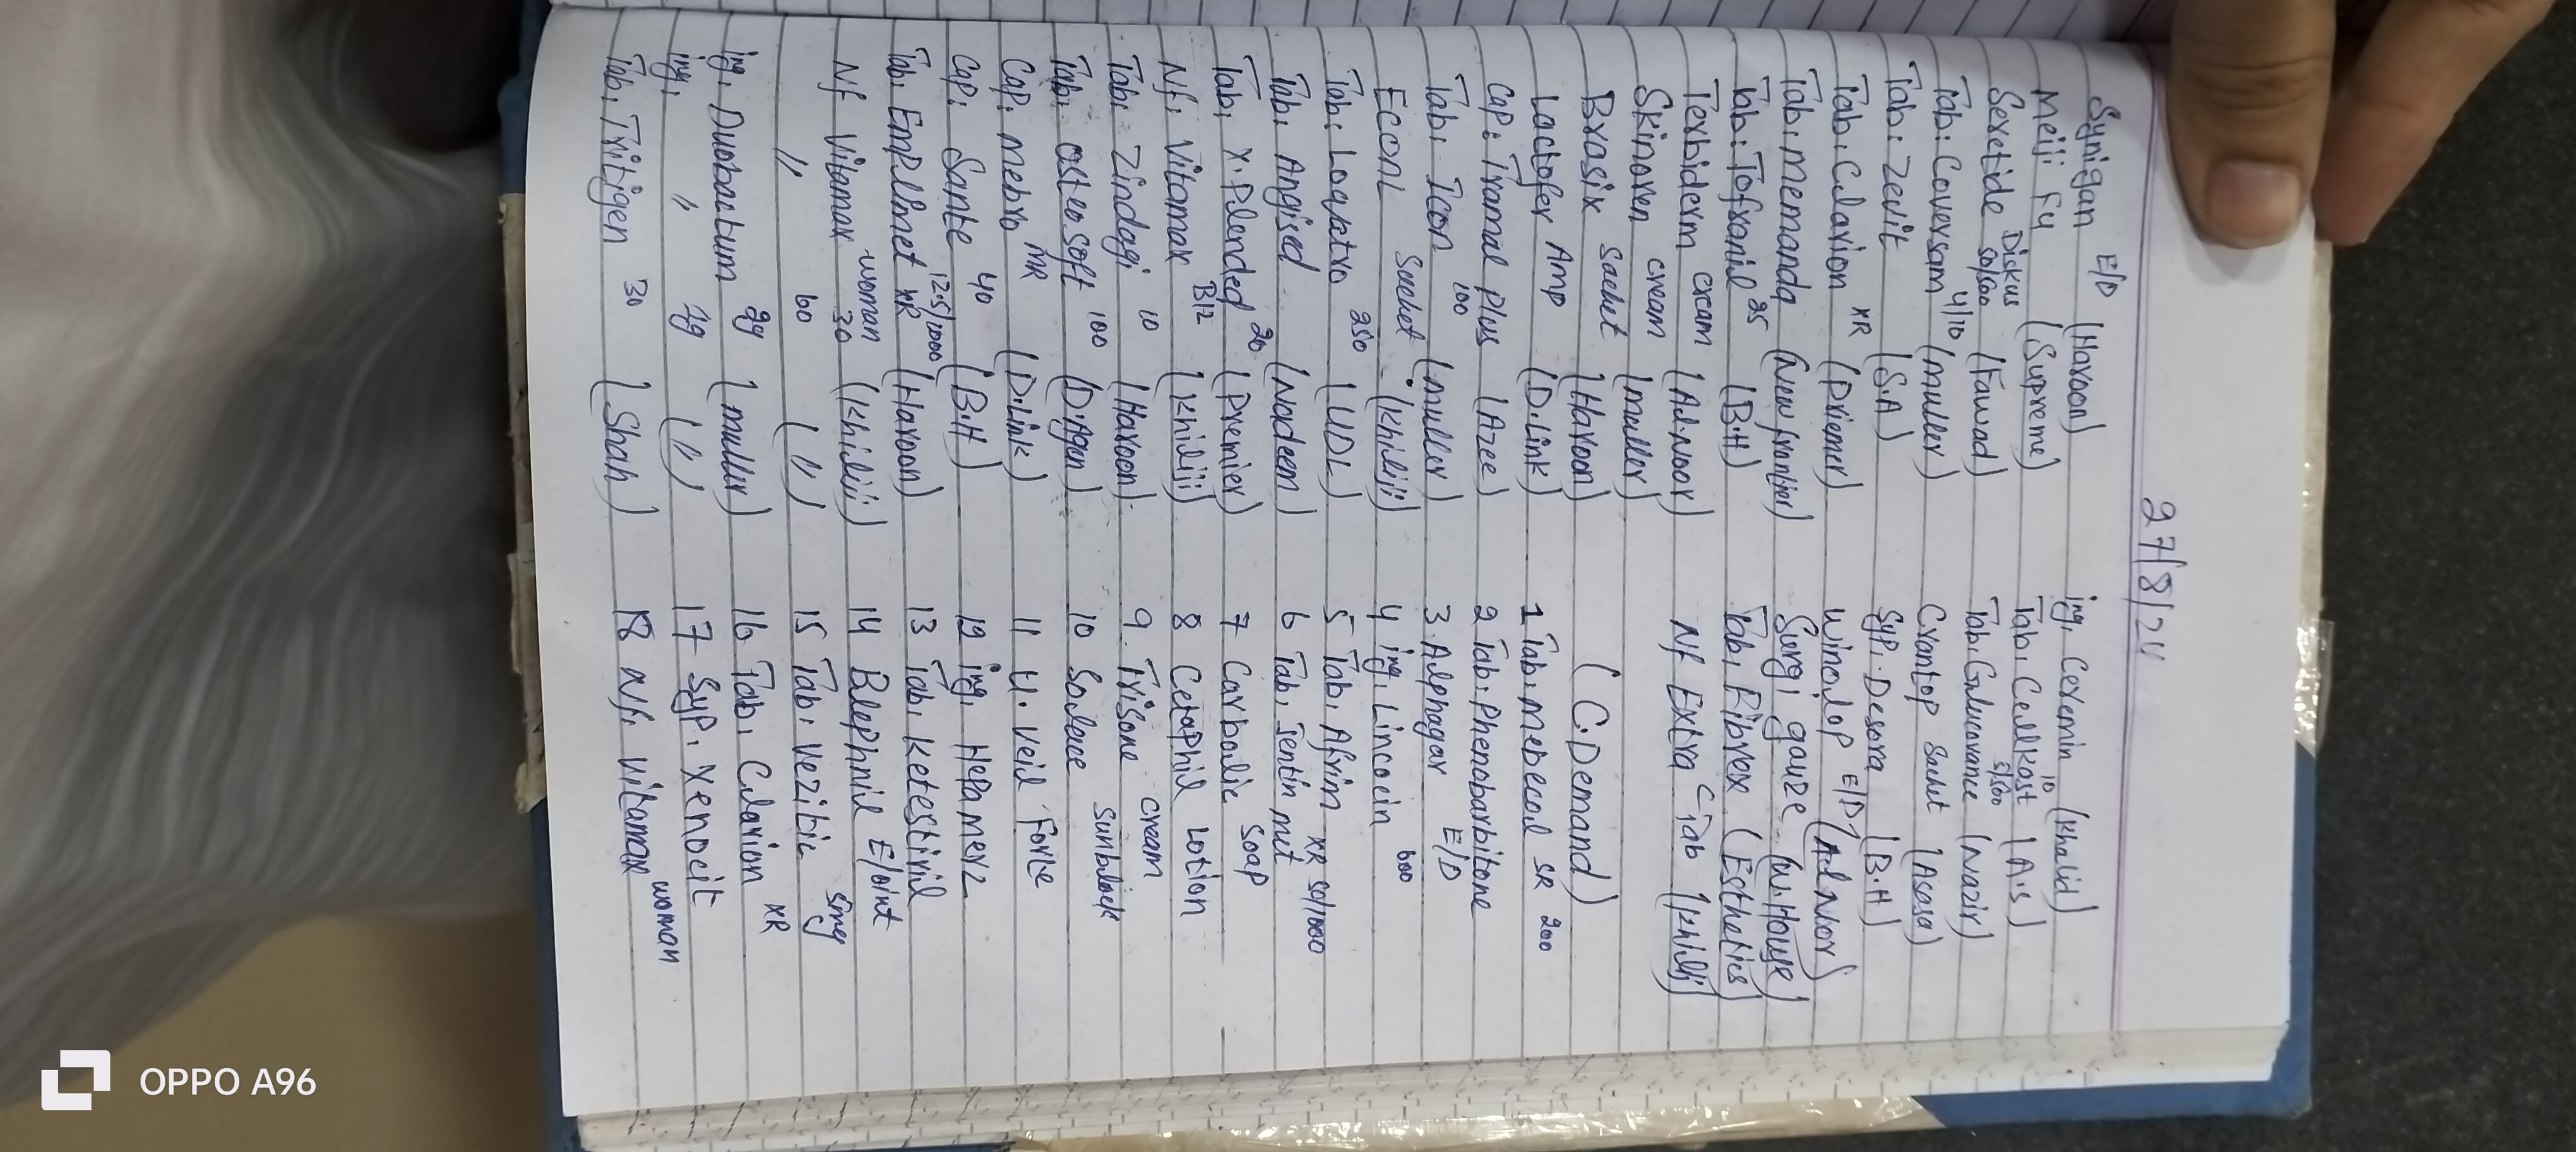 27/8/24
Synigan E/D (Haroon)
Meiji Fu (Supreme)
Seretide Diskus 50/500 (Fawad)
Tab. Coversam 4/10 (muller)
Tab. Zevit (S.A)
Tab. Clarion XR (Priemer)
Tab. Memanda (New frontier)
Tab. Tofranil 25 (B.H)
Terbiderm cream (Al.Noor)
Skinoren cream (muller)
Brasix Sachet (Haroon)
Lactofer Amp (D.Link)
Cap. Tramal Plus (Azee)
Tab. Icon 100 (muller)
Econi Sachet (Khiliji)
Tab. Loqatro 250 (UDL)
Tab. Angised (Nadeem)
Tab. X.Plended 20 (Premier)
Nf. Vitamax B12 (Khiliji)
Tab. Zindagi 10 (Haroon)
Tab. Osteo Soft 100 (D.Agan)
Cap. Mebro MR (D.Link)
Cap. Sante 40 (B.H)
Tab. EmPlimet XR 12.5/1000 (Haroon)
Nf Vitamax woman 30 (Khiliji)
" 60 (")
inj. Duobactum 2g (muller)
inj. " 1g (")
Tab. Tritigen 30 (Shah)
inj. Ceremin 10 (Khalid)
Tab. Cellkast (A.S)
Tab. Glucovance 5/500 (Nazir)
Crantop Sachet (Asasa)
Syp. Desora (B.H)
Winolop E/D (Al Noor)
Surgi gauze (W.House)
Tab. Ribrex (Esthatics)
Nf Extra C Tab (Khiliji)
(C.Demand)
1 Tab. Mebecol SR 200
2 Tab. Phenobarbitone
3. Alphagar E/D
4 inj. Lincocin 600
5 Tab. Afrim XR 50/1000
6 Tab. Jentin met
7 Carbolic Soap
8 CetaPhil Lotion
9. Trisone cream
10 Solace Sunblock
11 U. Veil Forte
12 inj. HePamerz
13 Tab. Ketestivil
14 Blephnil E/oint
15 Tab. Vezitic 5mg
16 Tab. Clarion XR
17 Syp. Xenocit
18 Nf. Vitamax woman